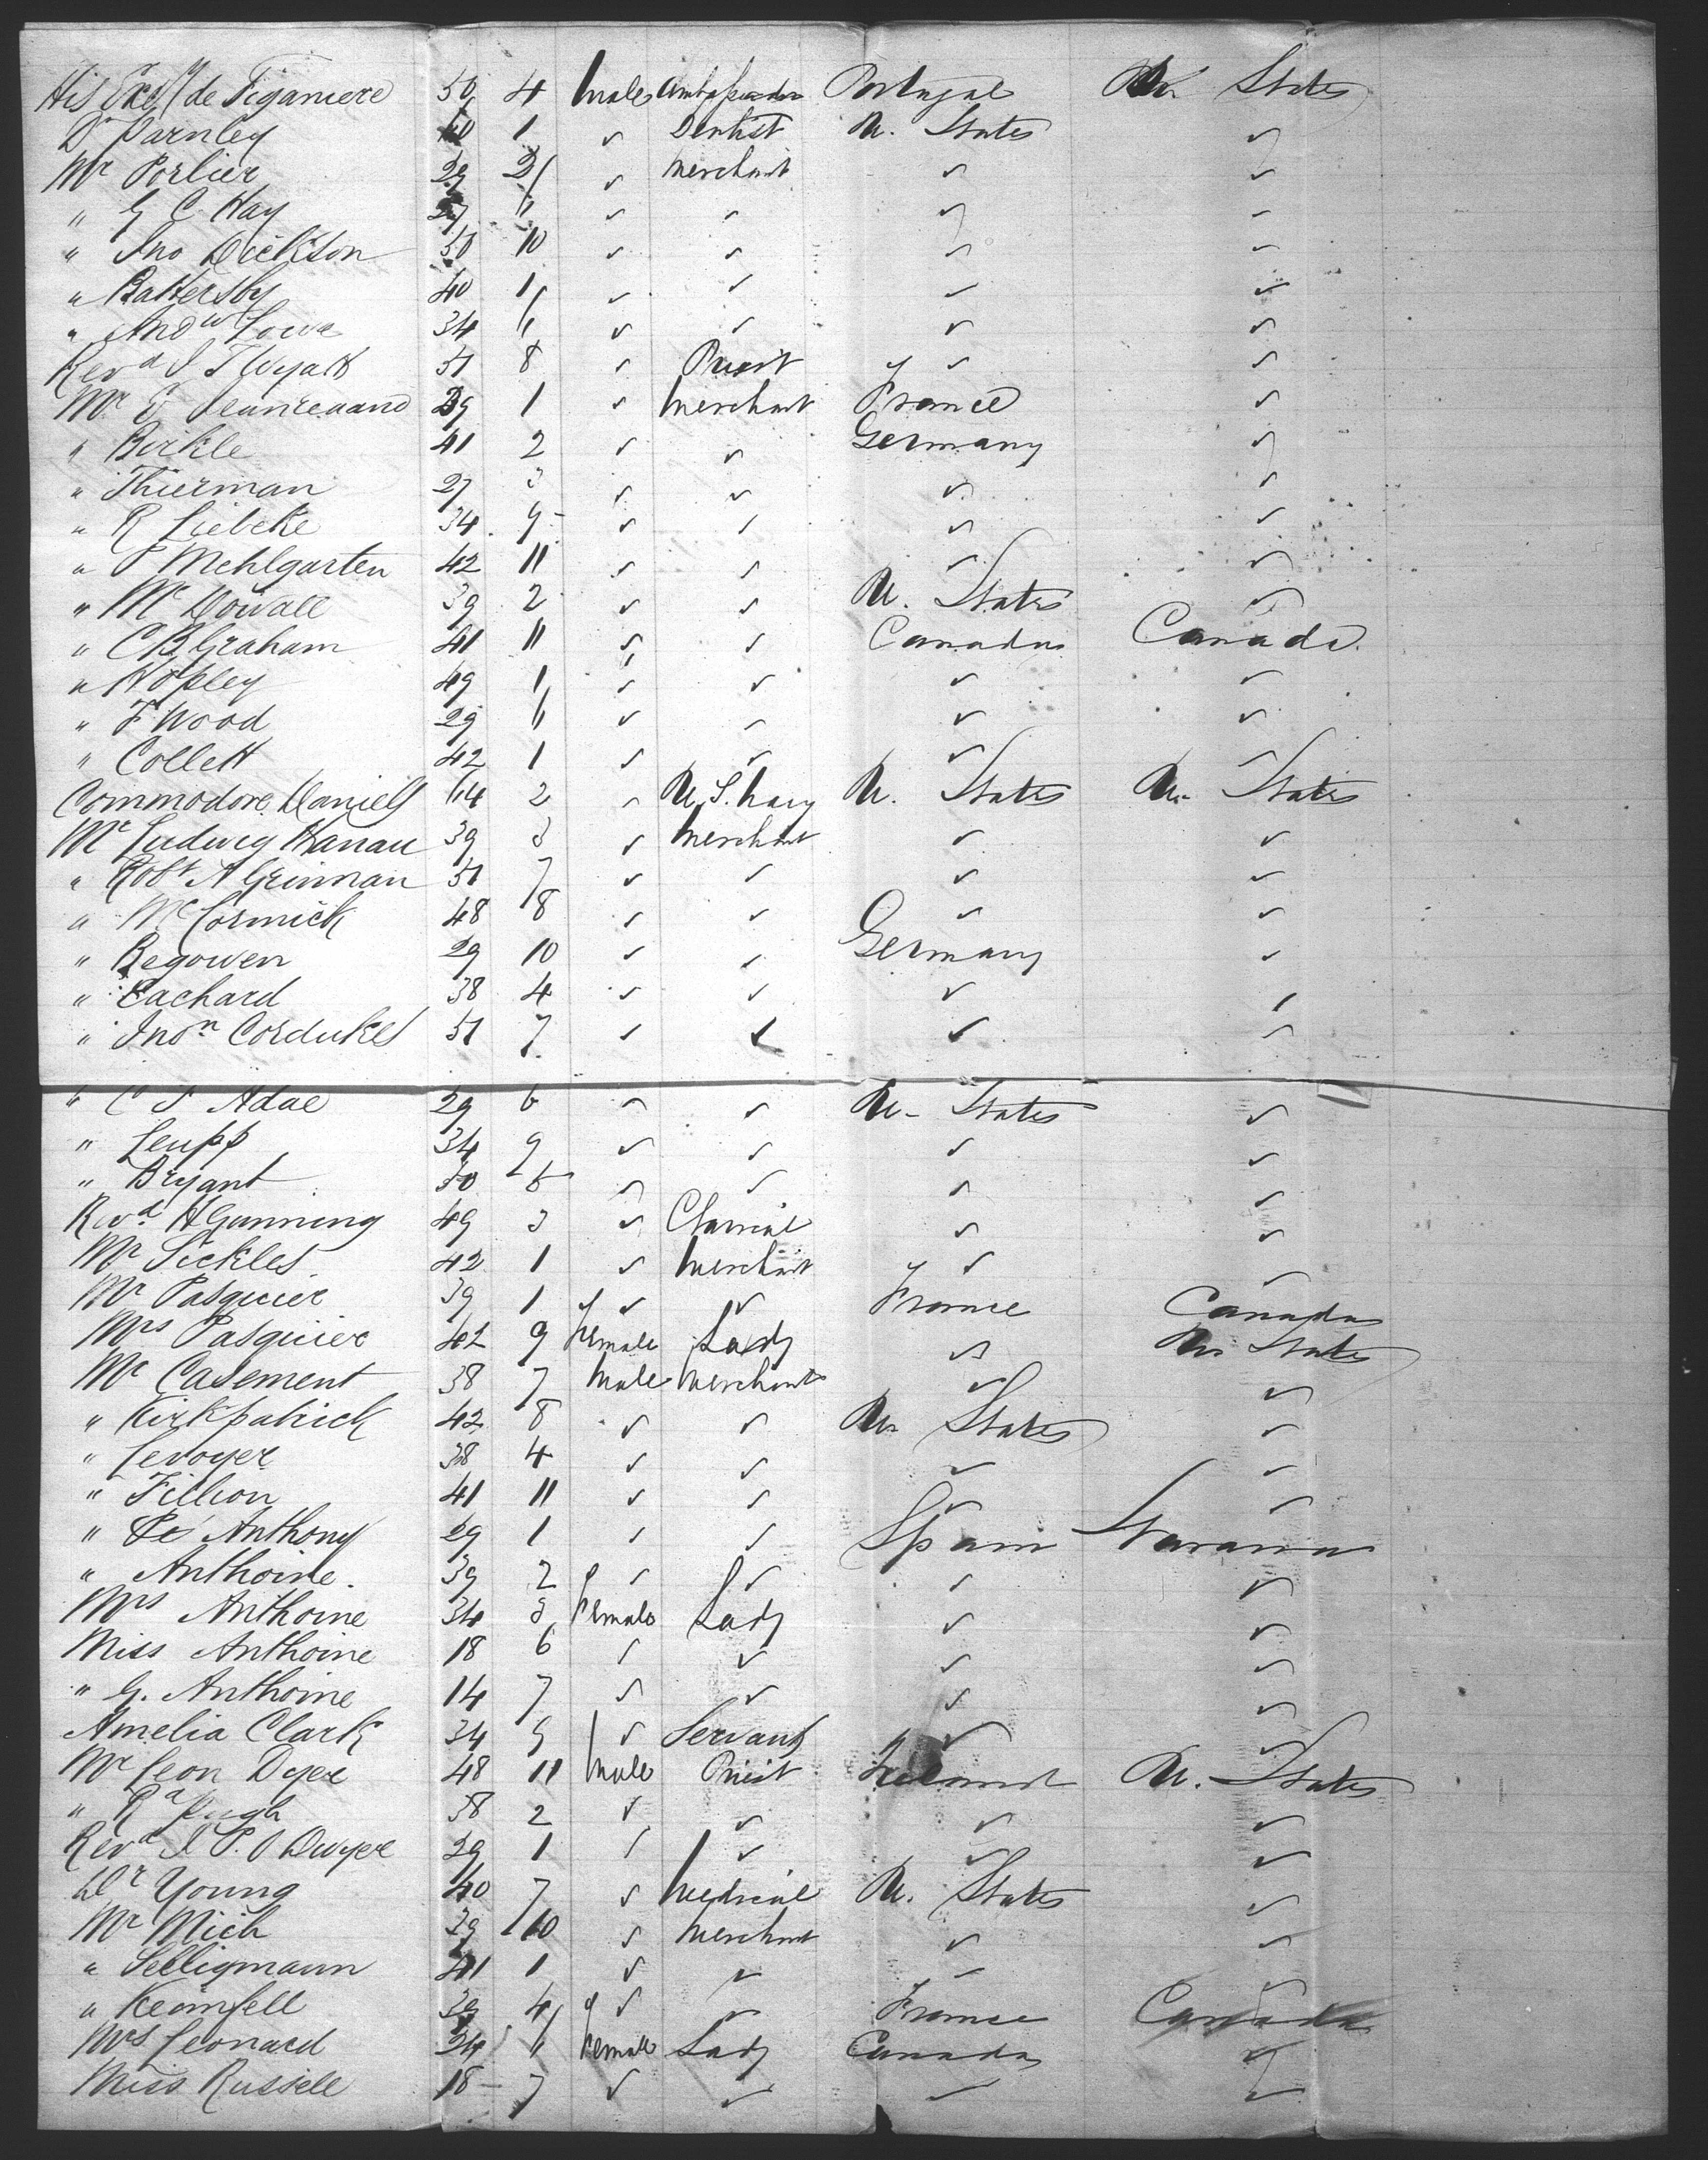 His Excy de Figaniere 50 4 Male Ambassador Portugal U. States
Dr Parnley 60 1 ✓ Dentist U. States ✓
Mr Porlier 29 2 ✓ Merchant ✓ ✓
" G C Hay 27 11 ✓ ✓ ✓ ✓
" Jno Dickson 30 10 ✓ ✓ ✓ ✓
" Battersby 40 1 ✓ ✓ ✓ ✓
" Andw Lowe 34 11 ✓ ✓ ✓ ✓
Revd J T Wyatt 31 8 ✓ Priest ✓ ✓
Mr 39 1 ✓ Merchant France ✓
" Birkle 41 2 ✓ ✓ Germany ✓
" Thierman 27 3 ✓ ✓ ✓ ✓
" R Liebeke 34 9 ✓ ✓ ✓ ✓
" P Mehlgarten 42 11 ✓ ✓ ✓ ✓
" Mc Dowall 39 2 ✓ ✓ U. States ✓
" C B Graham 41 11 ✓ ✓ Canada Canada
" 49 1 ✓ ✓ ✓ ✓
" F Wood 29 11 ✓ ✓ ✓ ✓
" Collett 42 1 ✓ ✓ ✓ ✓
Commodore Daniels 64 2 ✓ U. S. Navy U. States U. States
Mr Ludwig Hanau 39 3 ✓ Merchant ✓ ✓
" Robt A Grinnan 31 7 ✓ ✓ ✓ ✓
" McCormick 48 8 ✓ ✓ ✓ ✓
" Regowen 29 10 ✓ ✓ Germany ✓
" Cachard 38 4 ✓ ✓ ✓ ✓
" Jnon Cordukes 51 7 ✓ ✓ ✓ ✓
" C S Adae 29 6 ✓ ✓ U. States ✓
" Leupp 34 9 ✓ ✓ ✓ ✓
" Bryant 30 6 ✓ ✓ ✓ ✓
Revd H Gunning 49 3 ✓ Clerical ✓ ✓
Mr Sickles 42 1 ✓ Merchant ✓ ✓
Mr Pasquier 39 1 ✓ ✓ France Canada
Mrs Pasquier 42 9 Female Lady ✓ U. States
Mr Casement 38 7 Male Merchant ✓ ✓
" Kirkpatrick 42 8 ✓ ✓ U. States ✓
" Levoyer 38 4 ✓ ✓ ✓ ✓
" Fillion 41 11 ✓ ✓ ✓ ✓
" Anthony 29 1 ✓ ✓ Spain Havana
" Anthoine 39 2 ✓ ✓ ✓ ✓
Mrs Anthoine 34 3 Female Lady ✓ ✓
Miss Anthoine 18 6 ✓ ✓ ✓ ✓
" G. Anthoine 14 7 ✓ ✓ ✓ ✓
Amelia Clark 34 9 ✓ Servant ✓ ✓
Mr Leon Dyer 48 11 Male Priest Ireland U. States
" Rd Pugh 38 2 ✓ ✓ ✓ ✓
Revd J P. O Dwyer 29 1 ✓ ✓ ✓ ✓
Dr Young 40 7 ✓ Medical U. States ✓
Mr Mich 39 10 ✓ Merchant ✓ ✓
" Selligmann 41 1 ✓ ✓ ✓ ✓
" Keimfell 39 4 ✓ ✓ France Canada
Mrs Leonard 34 11 Female Lady Canada ✓
Miss Russell 18 7 ✓ ✓ ✓ ✓